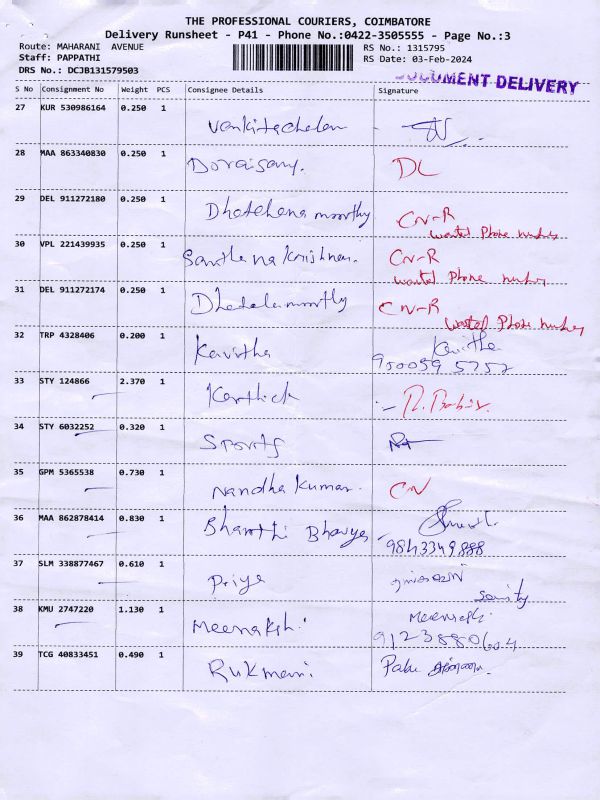 THE PROFESSIONAL COURIERS, COIMBATORE
Delivery Runsheet - P41 - Phone No.:0422-3505555 - Page No.:3
Route: MAHARANI AVENUE
RS No.: 1315795
Staff: PAPPATHI
RS Date: 03-Feb-2024
DRS No.: DCJB131579503
DOCUMENT DELIVERY
S No Consignment No Weight PCS Consignee Details Signature
27 KUR 530986164 0.250 1
Venkitachalam
28 MAA 863340830 0.250 1
Doraisamy. DL
29 DEL 911272180 0.250 1
CN-R
wanted Phone number
30 VPL 221439935 0.250 1
Santhana Krishnan. CN-R
wanted Phone number
31 DEL 911272174 0.250 1
CN-R
wanted Phone number
32 TRP 4328406 0.200 1
Kavitha Kavitha
33 STY 124866 2.370 1
Karthick
34 STY 6032252 0.320 1
Sports
35 GPM 5365538 0.730 1
Nandha Kumar. CN
36 MAA 862878414 0.830 1
Bharathi Bhavya
9843349888
37 SLM 338877467 0.610 1
Priya
38 KMU 2747220 1.130 1
Meenakshi Meenakshi
9123880604
39 TCG 40833451 0.490 1
Rukmani